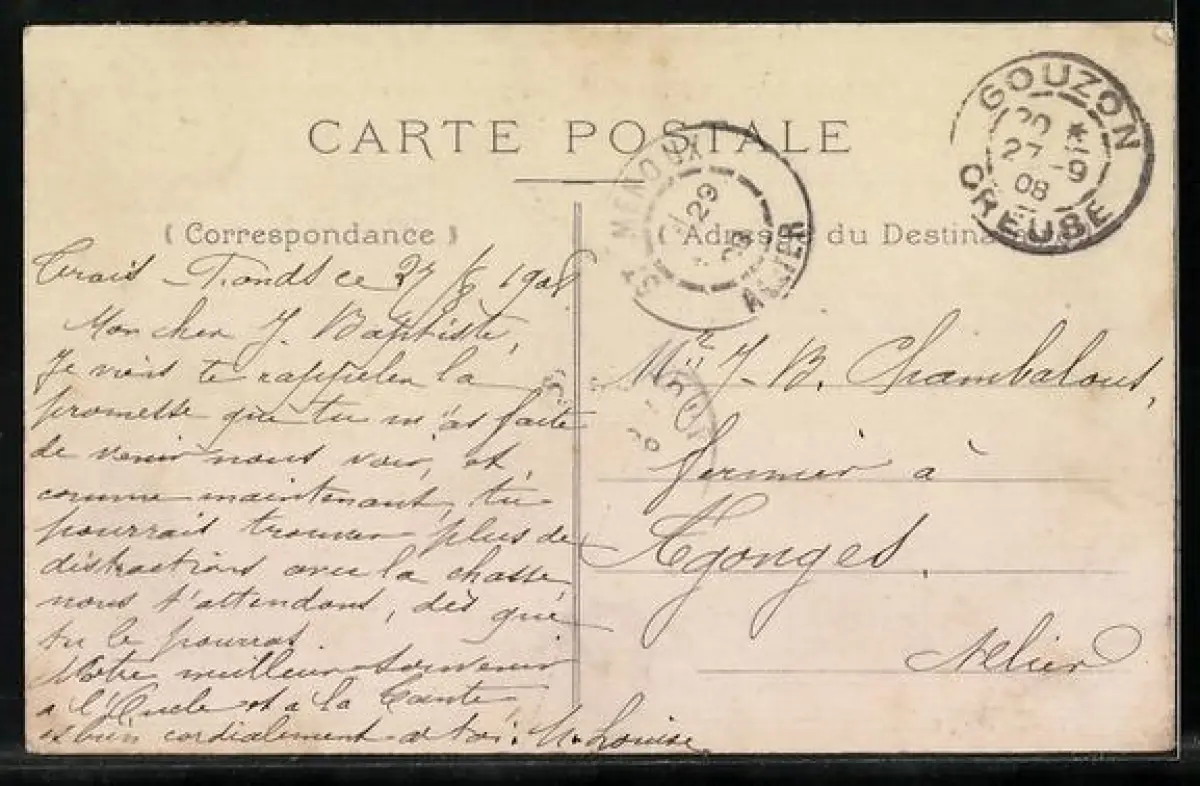 CARTE POSTALE
GOUZON
20 *
27 -9
08
CREUSE
ST MENOUX
29
ALLIER
( Correspondance )
( Adresse du Destina
Trois-Fonds ce 27/8 1908
Mon cher J. Baptiste,
Je viens te rappeler la
promesse que tu m'as faite
de venir nous voir, et,
comme maintenant, tu
pourrais trouver plus de
distractions avec la chasse,
nous t'attendons, dès que
tu le pourras.
Notre meilleur souvenir
à l'Oncle et à la Tante
et bien cordialement à toi. M. Louise
Mr J-B. Chambalous,
fermier à
Agonges.
Allier